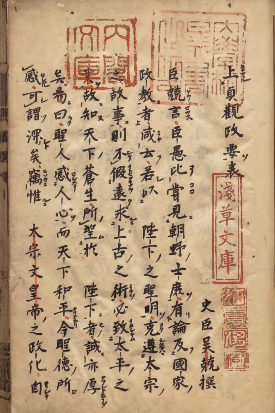 上貞觀政要表
史臣吳兢撰
臣兢言臣愚比嘗見朝野士庶有論及國家
政教者咸云若以 陛下之聖明克遵太宗
之故事則不假遠求上古之術必致太平之
業故知天下蒼生所望於 陛下者誠亦厚
矣易曰聖人感人心而天下和平今聖德所
感可謂深矣竊惟 太宗文皇帝之政化自
淺草文庫
內閣文庫